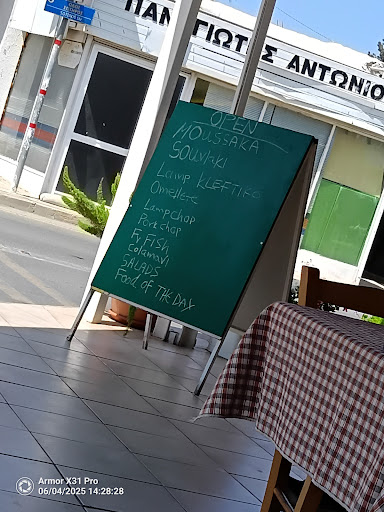 ΠΑΝΑΓΙΩΤΗΣ ΑΝΤΩΝΙΟ
OPEN
MOUSSAKA
SOUVlaki
Lamp KLEFTIKO
Omellete
Lampchop
Porkchop
Fy FISH
Calamavi
SALADS
Food OF THE DAY
Armor X31 Pro
06/04/2025 14:28:28